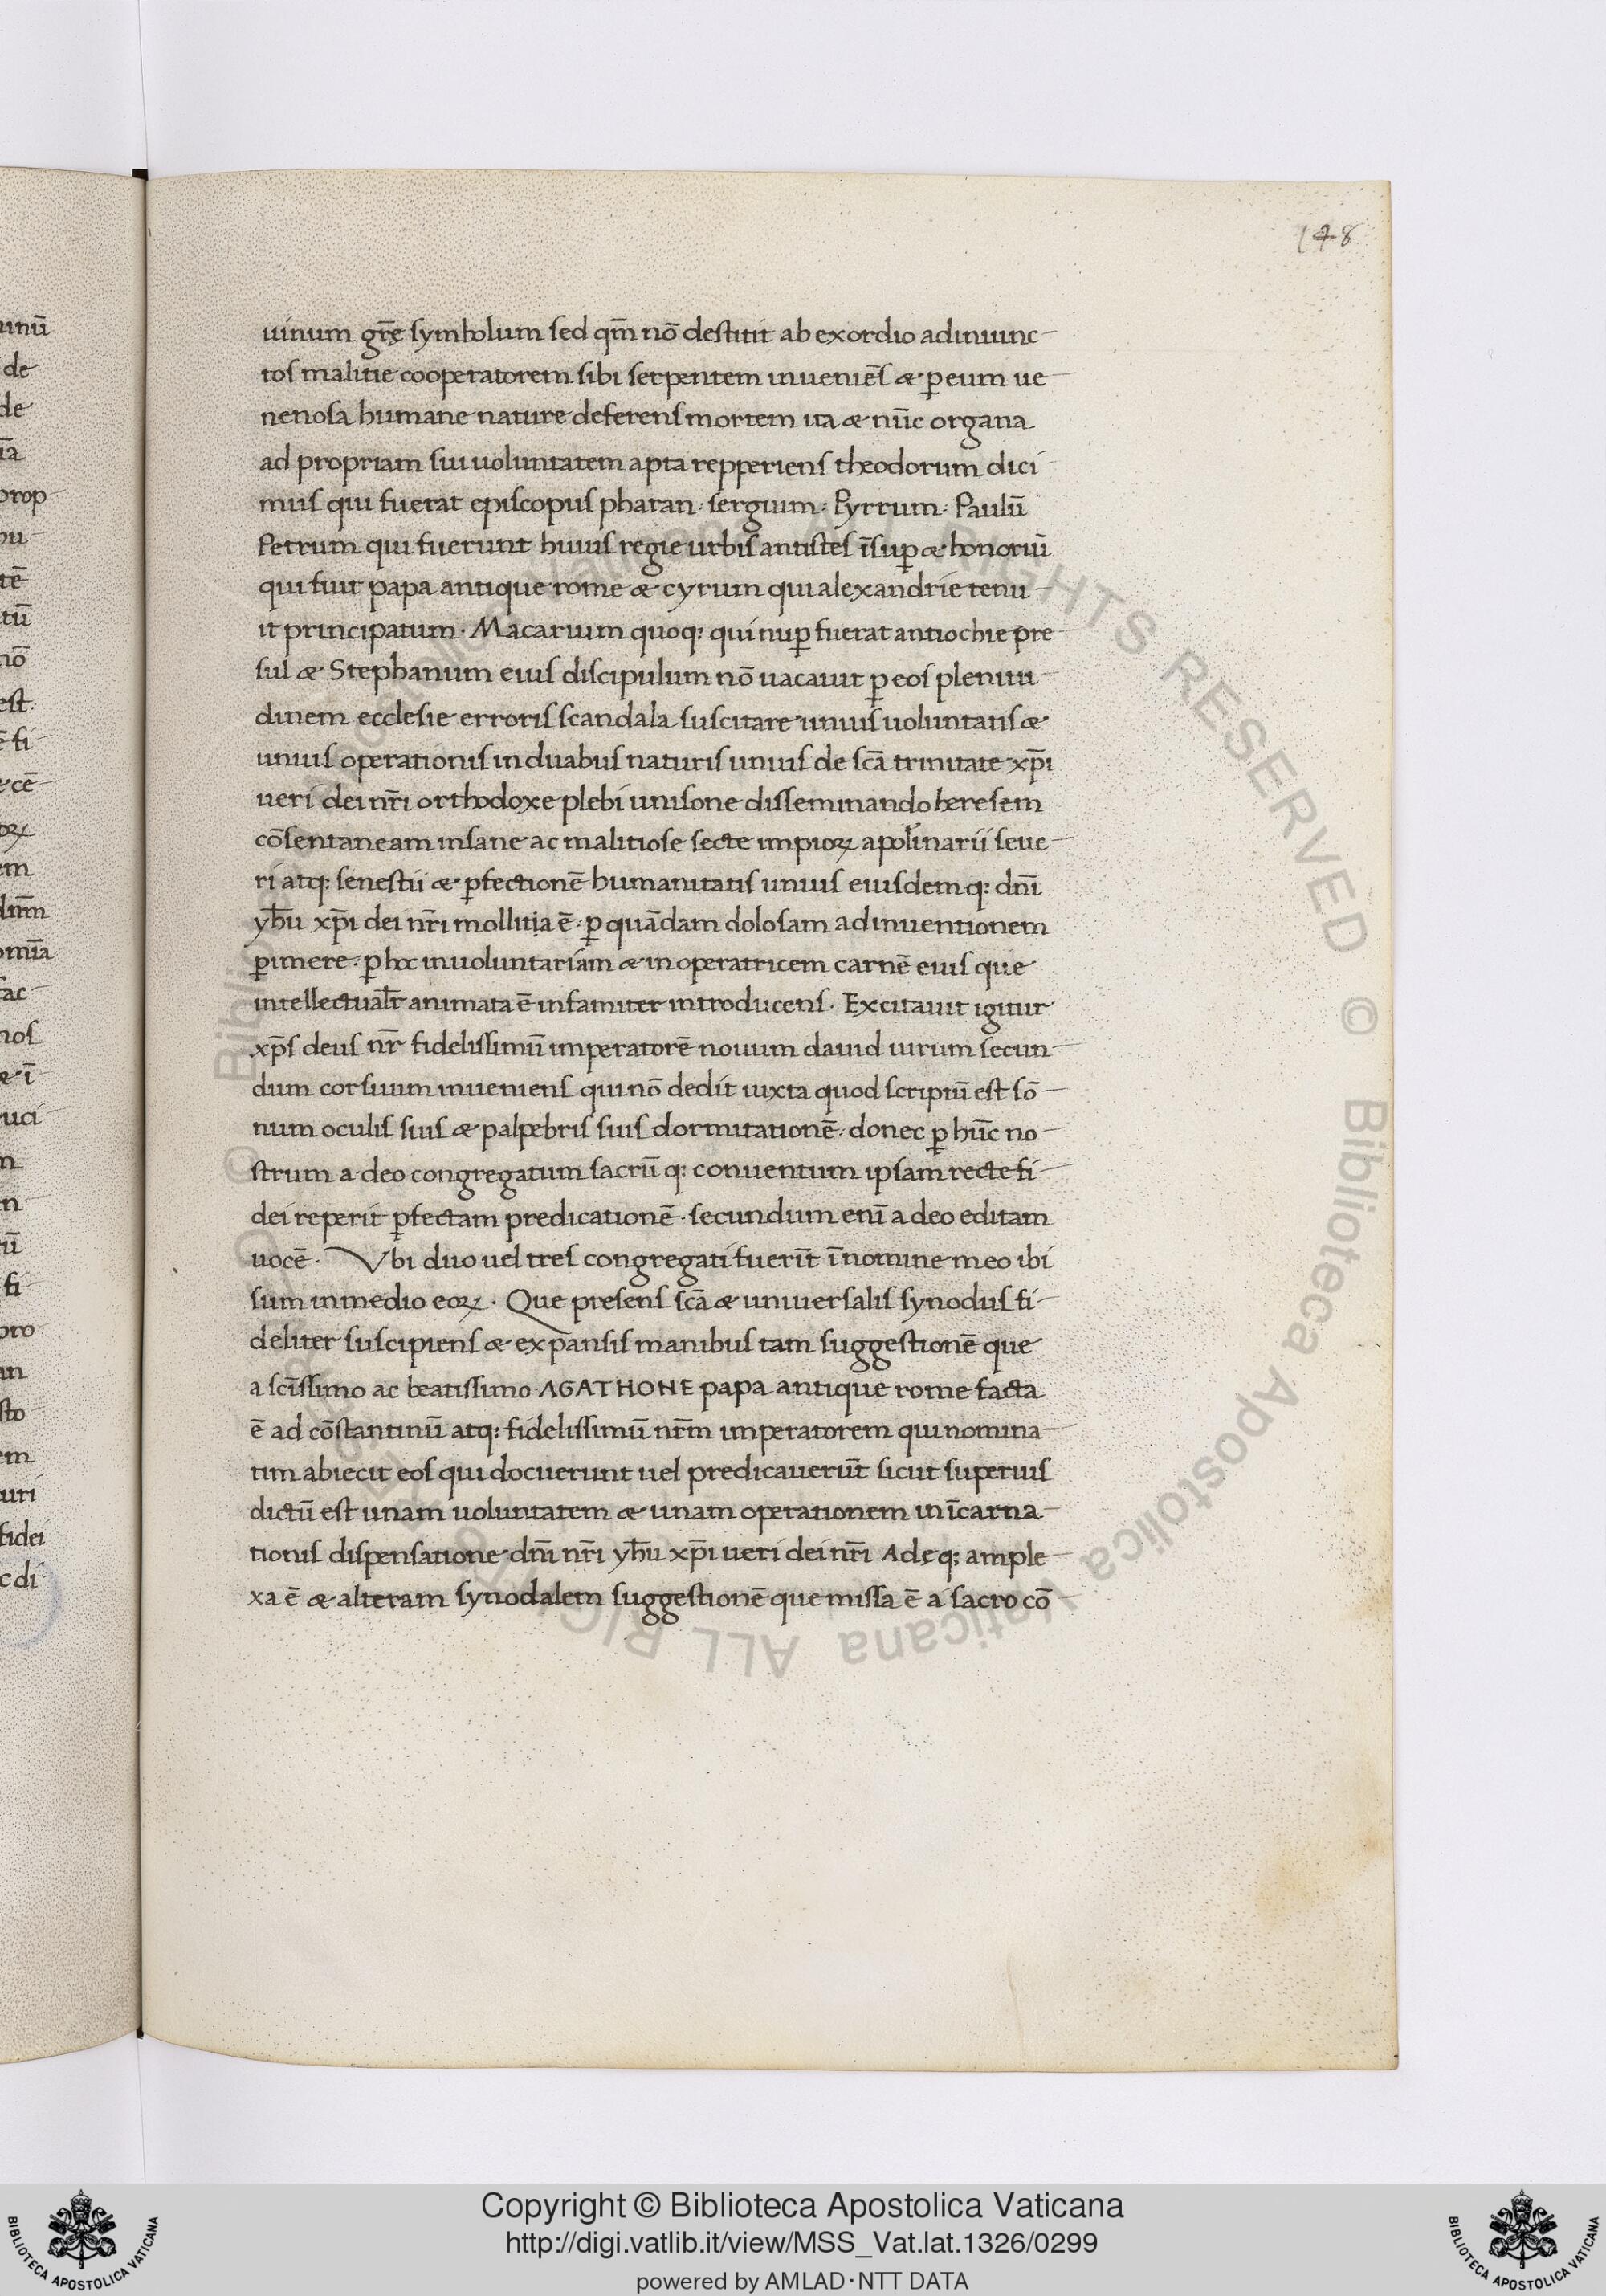 148
uinum gr̄ę symbolum sed qm̄ nō destitit ab exordio adinuinc-
tos malitie cooperatorem sibi serpentem inueniēs & ꝑ eum ue-
nenosa humane nature deferens mortem ita & nūc organa
ad propriam sui uoluntatem apta repperiens theodorum dici-
mus qui fuerat episcopus pharan· sergium: Pyrrum: Paulū
Petrum qui fuerunt huius regie urbis antistes īsuꝑ & honoriū
qui fuit papa antique rome & cyrum qui alexandrie tenu-
it principatum· Macarium quoq: qui nuꝑ fuerat antiochie pre-
sul & Stephanum eius discipulum nō uacauit ꝑ eos plenitu-
dinem ecclesie erroris scandala suscitare unius uoluntatis &
unius operationis in duabus naturis unius de scā trinitate xp̄i
ueri dei nr̄i orthodoxe plebi unisone disseminando heresem
cōsentaneam insane ac malitiose secte impioꝝ apolinarii seue-
ri atq: senestii & ꝑfectionē humanitatis unius eiusdemq: dnī
yhū xp̄i dei nr̄i mollitia ē· ꝑ quādam dolosam adinuentionem
ꝑimere: ꝑ hoc inuoluntariam & inoperatricem carnē eius que
intellectualr̄ animata ē infamiter introducens· Excitauit igitur
xp̄s deus nr̄ fidelissimū imperatorē nouum dauid uirum secun-
dum cor suum inueniens qui nō dedit iuxta quod scriptū est sō-
num oculis suis & palpebris suis dormitationē· donec ꝑ hūc no-
strum a deo congregatum sacrū q: conuentum ipsam recte fi-
dei reperit ꝑfectam predicationē· secundum enī a deo editam
uocē· Vbi duo uel tres congregati fuerīt ī nomine meo ibi
sum in medio eoꝝ· Que presens scā & uniuersalis synodus fi-
deliter suscipiens & expansis manibus tam suggestionē que
a scīssimo ac beatissimo AGATHONE papa antique rome facta
ē ad cōstantinū atq: fidelissimū nr̄m imperatorem qui nomina-
tim abiecit eos qui docuerunt uel predicauerūt sicut superius
dictū est unam uoluntatem & unam operationem in īcarna-
tionis dispensatione dnī nr̄i yhū xp̄i ueri dei nr̄i Adęq: ample-
xa ē & alteram synodalem suggestionē que missa ē a sacro cō-
Copyright © Biblioteca Apostolica Vaticana
http://digi.vatlib.it/view/MSS_Vat.lat.1326/0299
powered by AMLAD·NTT DATA
BIBLIOTECA APOSTOLICA VATICANA
BIBLIOTECA APOSTOLICA VATICANA